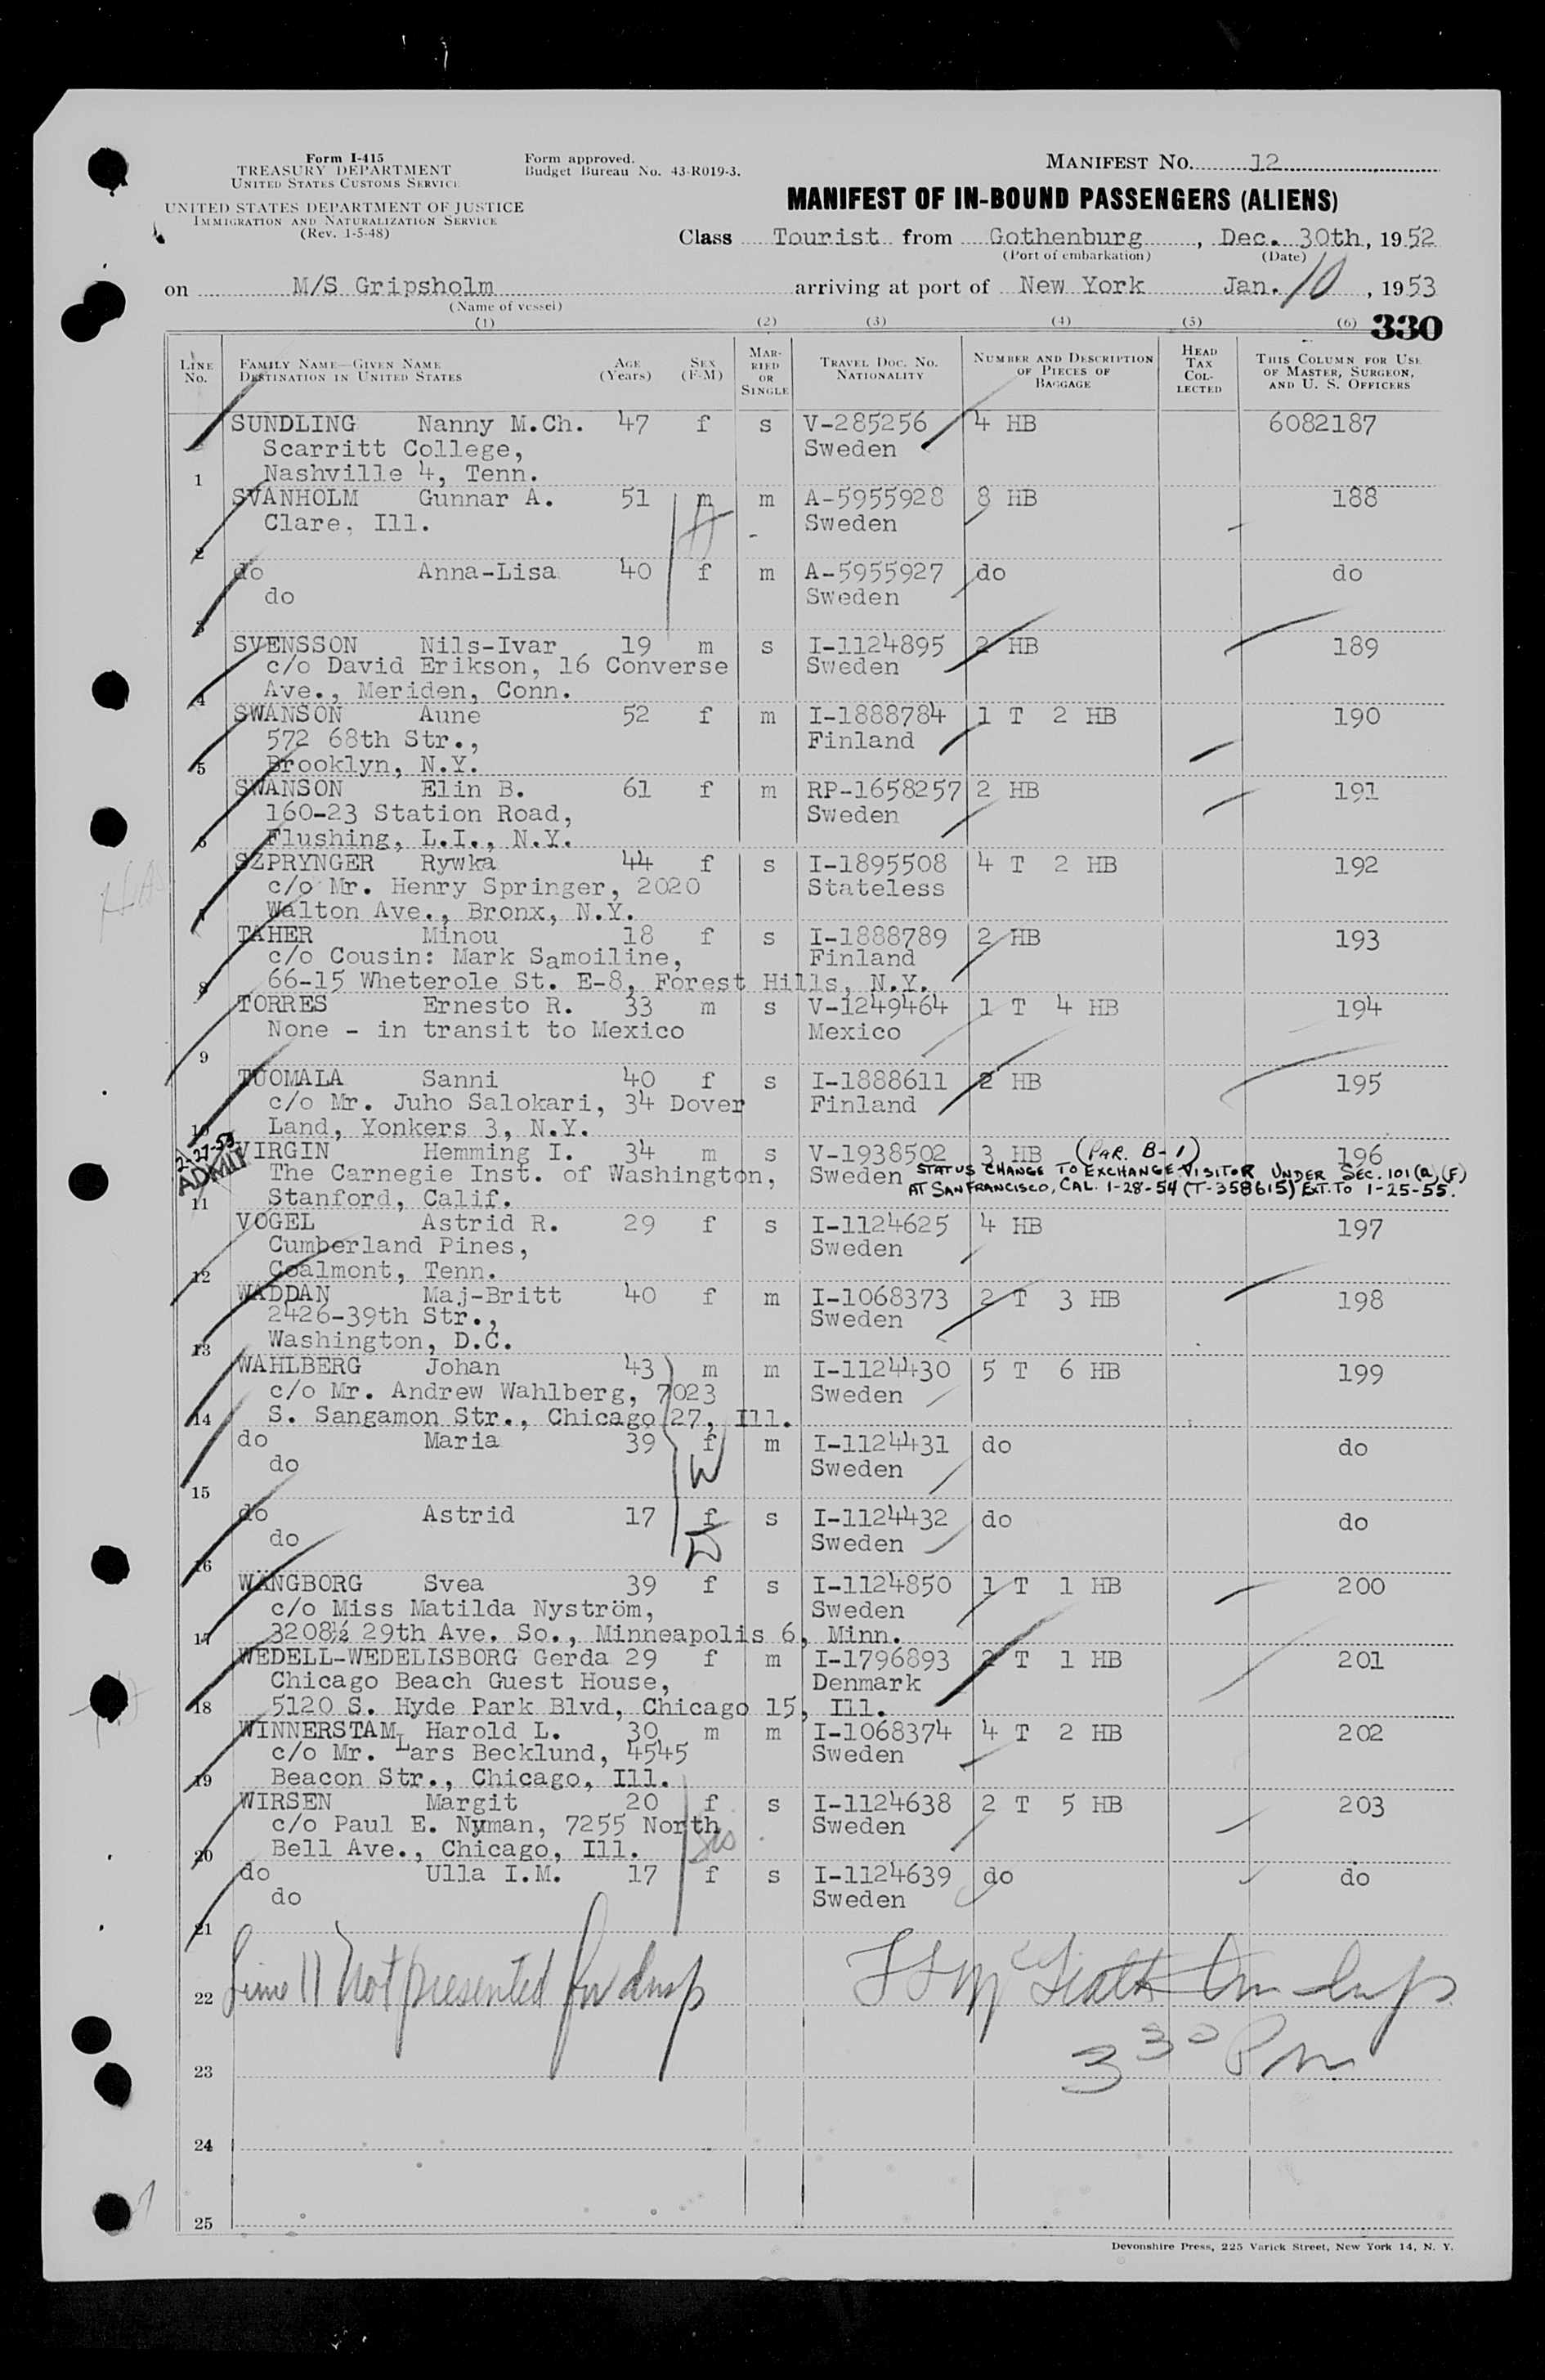 Form I-415
TREASURY DEPARTMENT
UNITED STATES CUSTOMS SERVICE
UNITED STATES DEPARTMENT OF JUSTICE
IMMIGRATION AND NATURALIZATION SERVICE
(Rev. 1-5-48)
Form approved.
Budget Bureau No. 43-R019-3.
MANIFEST NO. 12
MANIFEST OF IN-BOUND PASSENGERS (ALIENS)
Class Tourist from Gothenburg, Dec. 30th, 1952
(Port of embarkation) (Date)
on M/S Gripsholm arriving at port of New York Jan. 10, 1953
(Name of vessel)
(1) (2) (3) (4) (5) (6) 330
LINE No. FAMILY NAME—GIVEN NAME DESTINATION IN UNITED STATES AGE (Years) SEX (F-M) MARRIED OR SINGLE TRAVEL DOC. NO. NATIONALITY NUMBER AND DESCRIPTION OF PIECES OF BAGGAGE HEAD TAX COLLECTED THIS COLUMN FOR USE OF MASTER, SURGEON, AND U. S. OFFICERS
SUNDLING Nanny M.Ch. 47 f s V-285256 4 HB 6082187
Scarritt College, Sweden
1 Nashville 4, Tenn.
SVANHOLM Gunnar A. 51 m m A-5955928 8 HB 188
Clare, Ill. Sweden
2
do Anna-Lisa 40 f m A-5955927 do do
do Sweden
3
SVENSSON Nils-Ivar 19 m s I-1124895 2 HB 189
c/o David Erikson, 16 Converse Sweden
4 Ave., Meriden, Conn.
SWANSON Aune 52 f m I-1888784 1 T 2 HB 190
572 68th Str., Finland
5 Brooklyn, N.Y.
SWANSON Elin B. 61 f m RP-1658257 2 HB 191
160-23 Station Road, Sweden
6 Flushing, L.I., N.Y.
SZPRYNGER Rywka 44 f s I-1895508 4 T 2 HB 192
c/o Mr. Henry Springer, 2020 Stateless
7 Walton Ave., Bronx, N.Y.
TAHER Minou 18 f s I-1888789 2 HB 193
c/o Cousin: Mark Samoiline, Finland
8 66-15 Wheterole St. E-8, Forest Hills, N.Y.
TORRES Ernesto R. 33 m s V-1249464 1 T 4 HB 194
None - in transit to Mexico Mexico
9
TUOMALA Sanni 40 f s I-1888611 2 HB 195
c/o Mr. Juho Salokari, 34 Dover Finland
10 Land, Yonkers 3, N.Y.
2-27-53 ADMIT
VIRGIN Hemming I. 34 m s V-1938502 3 HB (PAR. B-1) 196
The Carnegie Inst. of Washington, Sweden STATUS CHANGE TO EXCHANGE VISITOR UNDER SEC. 101(A)(F)
11 Stanford, Calif. AT SAN FRANCISCO, CAL. 1-28-54 (T-358615) EXT. TO 1-25-55.
VOGEL Astrid R. 29 f s I-1124625 4 HB 197
Cumberland Pines, Sweden
12 Coalmont, Tenn.
WADDAN Maj-Britt 40 f m I-1068373 2 T 3 HB 198
2426-39th Str., Sweden
13 Washington, D.C.
WAHLBERG Johan 43 m m I-1124430 5 T 6 HB 199
c/o Mr. Andrew Wahlberg, 7023 Sweden
14 S. Sangamon Str., Chicago 27, Ill.
do Maria 39 f m I-1124431 do do
do W Sweden
15
do Astrid 17 f s I-1124432 do do
do D Sweden
16
WÄNGBORG Svea 39 f s I-1124850 1 T 1 HB 200
c/o Miss Matilda Nyström, Sweden
17 3208½ 29th Ave. So., Minneapolis 6, Minn.
WEDELL-WEDELISBORG Gerda 29 f m I-1796893 2 T 1 HB 201
Chicago Beach Guest House, Denmark
18 5120 S. Hyde Park Blvd, Chicago 15, Ill.
WINNERSTAM Harold L. 30 m m I-1068374 4 T 2 HB 202
c/o Mr. Lars Becklund, 4545 Sweden
19 Beacon Str., Chicago, Ill.
WIRSEN Margit 20 f s I-1124638 2 T 5 HB 203
c/o Paul E. Nyman, 7255 North Sweden
20 Bell Ave., Chicago, Ill.
do Ulla I.M. 17 f s I-1124639 do do
do Sweden
21
22 Line 11 Not presented for insp
23 3 30 Pm
24
25
Devonshire Press, 225 Varick Street, New York 14, N. Y.